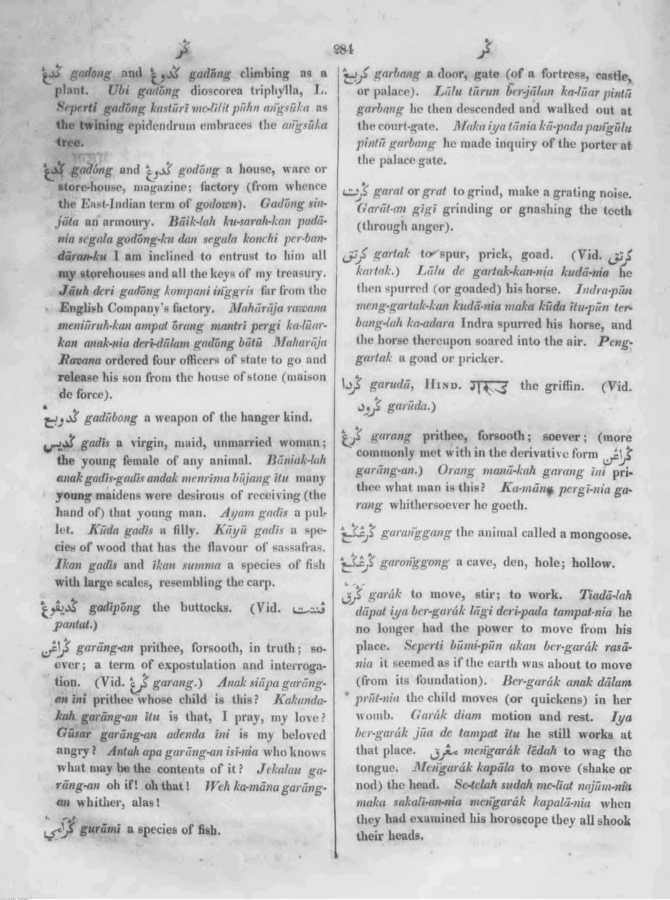 ݢر 284 ݢر
ݢدڠ gadong and ݢدوڠ gadōng climbing as a
plant. Ubi gadōng dioscorea triphylla, L.
Seperti gadōng kastūrī me-lilit pūhn ang̃sūka as
the twining epidendrum embraces the ang̃sūka
tree.
ݢدڠ gadóng and ݢدوڠ godōng a house, ware or
store-house, magazine; factory (from whence
the East-Indian term of godown). Gadōng sin-
jāta an armoury. Bāik-lah ku-sarah-kan padā-
nia segala godōng-ku dan segala konchi per-ban-
dāran-ku I am inclined to entrust to him all
my storehouses and all the keys of my treasury.
Jāuh deri gadōng kompani ing̃gris far from the
English Company's factory. Mahārāja rawana
meniūruh-kan ampat ōrang mantri pergi ka-lūar-
kan anak-nia deri-dālam gadōng bātū Maharāja
Ravana ordered four officers of state to go and
release his son from the house of stone (maison
de force).
ݢدوبڠ gadūbong a weapon of the hanger kind.
ݢديس gadīs a virgin, maid, unmarried woman;
the young female of any animal. Bāniak-lah
anak gadīs-gadīs andak menrīma būjang ītu many
young maidens were desirous of receiving (the
hand of) that young man. Ayam gadīs a pul-
let. Kūda gadīs a filly. Kāyū gadīs a spe-
cies of wood that has the flavour of sassafras.
Ikan gadīs and ikan summa a species of fish
with large scales, resembling the carp.
ݢديڤوڠ gadīpōng the buttocks. (Vid. ڤنتت
pantat.)
ݢراڠن garāng-an prithee, forsooth, in truth; so-
ever; a term of expostulation and interroga-
tion. (Vid. ݢرڠ garang.) Anak siāpa garāng-
an īni prithee whose child is this? Kakanda-
kah garāng-an ītu is that, I pray, my love?
Gūsar garāng-an adenda īni is my beloved
angry? Antah apa garāng-an isī-nia who knows
what may be the contents of it? Jekalau ga-
rāng-an oh if! oh that! Weh ka-māna garāng-
an whither, alas!
ݢرامي gurāmi a species of fish.
ݢربڠ garbang a door, gate (of a fortress, castle,
or palace). Lālu tūrun berjālan ka-lūar pintū
garbang he then descended and walked out at
the court-gate. Maka iya tānia kā-pada pang̃ūlu
pintū garbang he made inquiry of the porter at
the palace gate.
ݢرت garat or grat to grind, make a grating noise.
Garāt-an gīgī grinding or gnashing the teeth
(through anger).
ݢرتق gartak to spur, prick, goad. (Vid. كرتق
kartak.) Lālu de gartak-kan-nia kudā-nia he
then spurred (or goaded) his horse. Indra-pūn
meng-gartak-kan kudā-nia maka kūda ītu-pūn ter-
bang-lah ka-adara Indra spurred his horse, and
the horse thereupon soared into the air. Peng-
gartak a goad or pricker.
ݢردا garudā, HIND. गरुड the griffin. (Vid.
ݢرود garūda.)
ݢرڠ garang prithee, forsooth; soever; (more
commonly met with in the derivative form ݢراڠن
garāng-an.) Orang manā-kah garang īni pri-
thee what man is this? Ka-māna pergī-nia ga-
rang whithersoever he goeth.
ݢرڠݢڠ garang̃gang the animal called a mongoose.
ݢرڠݢڠ garong̃gong a cave, den, hole; hollow.
ݢرق garák to move, stir; to work. Tiadā-lah
dāpat iya ber-garák lāgi deri-pada tampat-nia he
no longer had the power to move from his
place. Seperti būmi-pūn akan ber-garák rasā-
nia it seemed as if the earth was about to move
(from its foundation). Ber-garák anak dālam
prūt-nia the child moves (or quickens) in her
womb. Garák diam motion and rest. Iya
ber-garák jūa de tampat ītu he still works at
that place. مڠرق meng̃arák lēdah to wag the
tongue. Meng̃arák kapāla to move (shake or
nod) the head. Se-telah sudah me-liat najūm-nia
maka sakalī-an-nia meng̃arák kapalā-nia when
they had examined his horoscope they all shook
their heads.